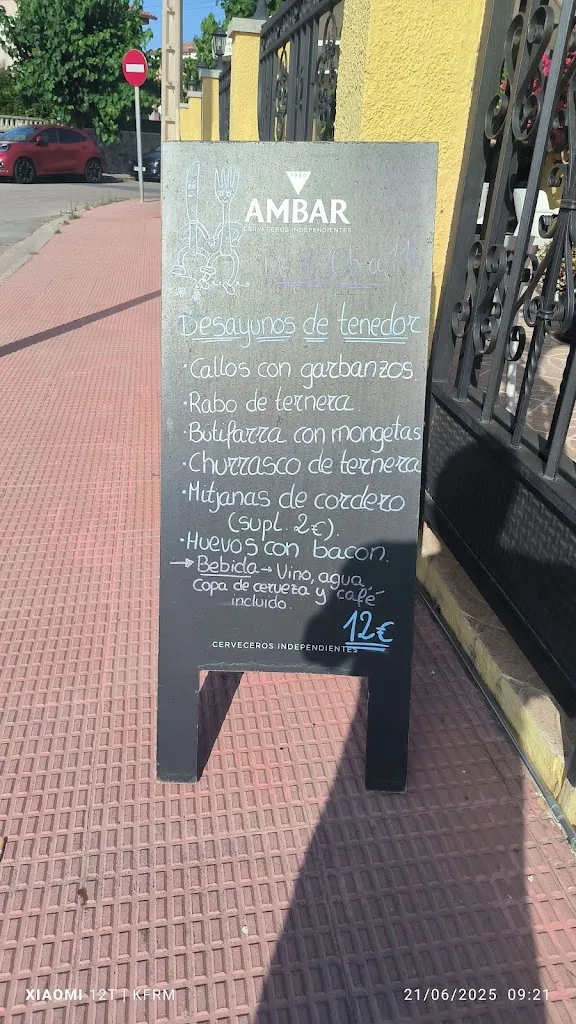 1900
AMBAR
CERVECEROS INDEPENDIENTES
Desayunos de tenedor
·Callos con garbanzos
·Rabo de ternera.
·Butifarra con mongetas
·Churrasco de ternera
·Mitjanas de cordero
(supl. 2€).
·Huevos con bacon.
→ Bebida → Vino, agua,
copa de cerveza y café
incluido.
12€
CERVECEROS INDEPENDIENTES
XIAOMI 12T | KFRM
21/06/2025 09:21